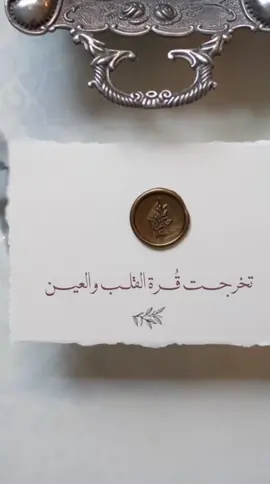 تخرجت قُرة القلب والعين